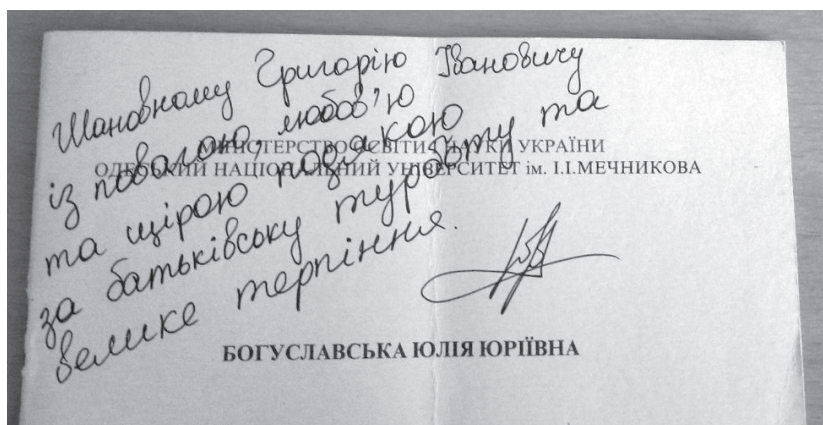 Шановному Григорію Івановичу
із повагою, любов'ю
та щірою подякою
за батьківську турботу та
велике терпіння.
МІНІСТЕРСТВО ОСВІТИ І НАУКИ УКРАЇНИ
ОДЕСЬКИЙ НАЦІОНАЛЬНИЙ УНІВЕРСИТЕТ ім. І.І.МЕЧНИКОВА
БОГУСЛАВСЬКА ЮЛІЯ ЮРІЇВНА